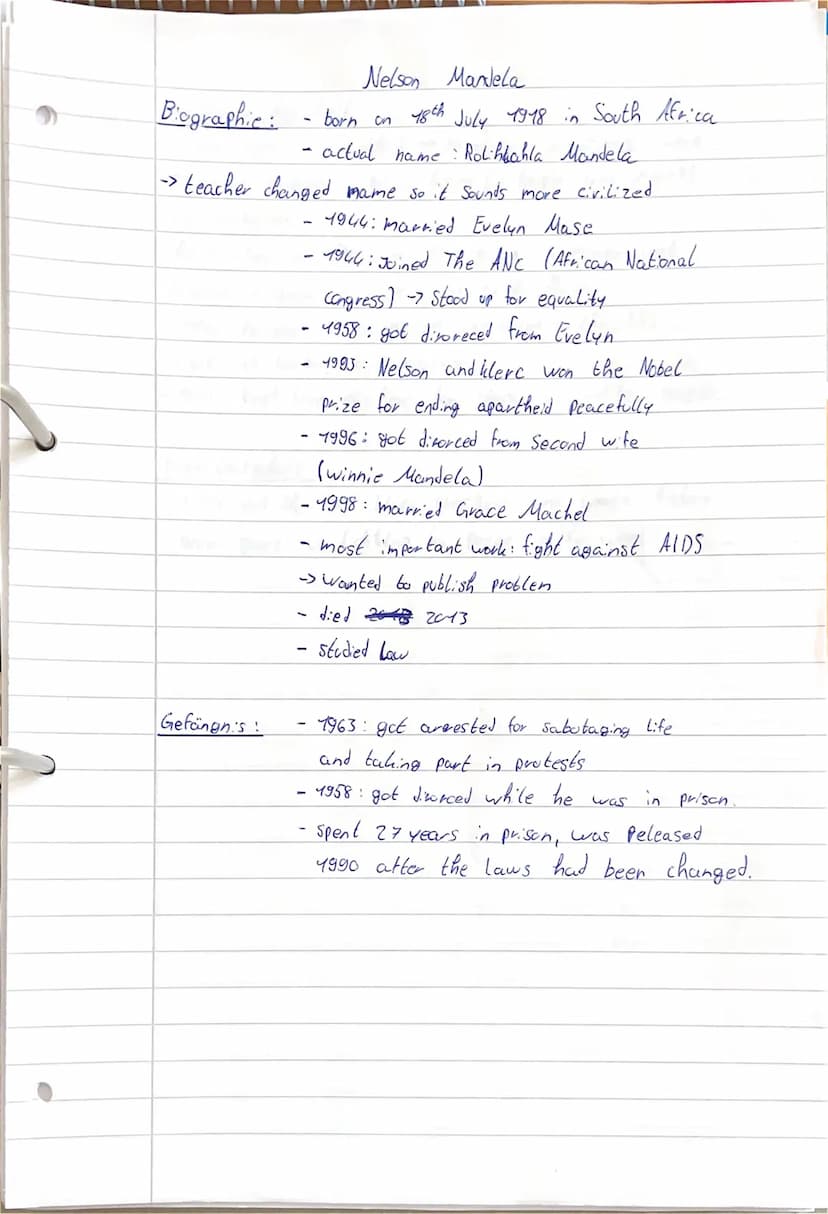 Nelson Mandela
Biographie: - born on 18th July 1918 in South Africa
- actual name: Rolihlahla Mandela
-> teacher changed name so it sounds more civilized
- 1944: married Evelyn Mase
- 1944: Joined The ANC (African National
Congress) -> stood up for equality
- 1958: got divoreced from Evelyn
- 1993: Nelson and klerc won the Nobel
prize for ending apartheid peacefully
- 1996: got divorced from Second wife
(winnie Mandela)
- 1998: married Grace Machel
- most important work: fight against AIDS
-> wanted to publish problem
- died 2013
- studied law
Gefängnis: - 1963: got arrested for sabotaging life
and taking part in protests
- 1958: got divorced while he was in prison.
- spent 27 years in prison, was Released
1990 after the laws had been changed.